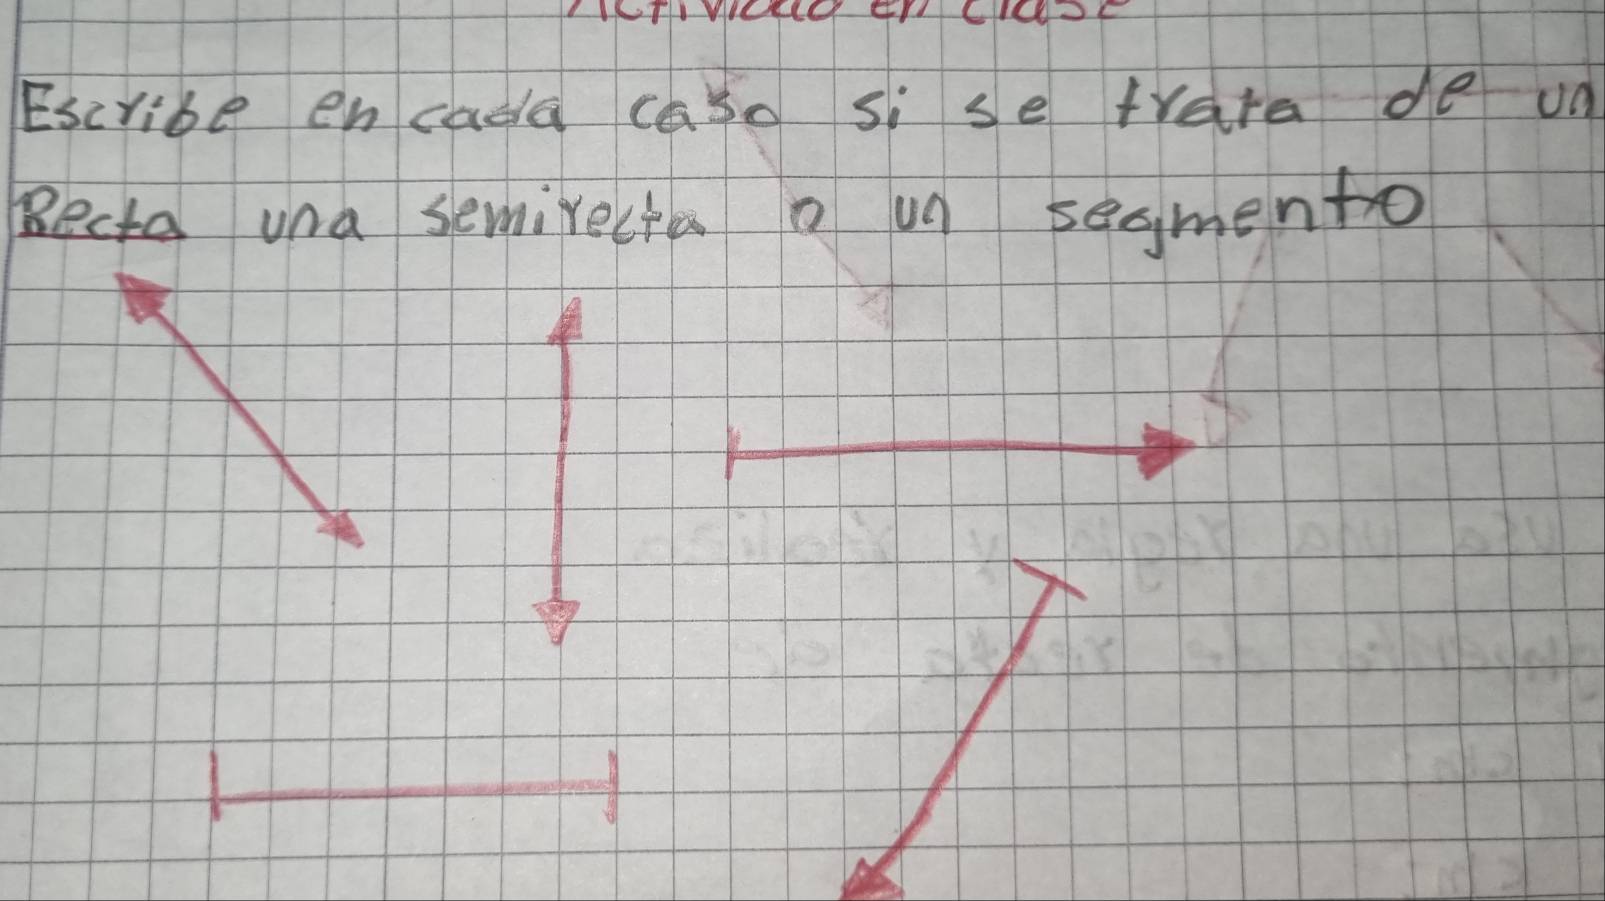 Actividad en clase
Escribe en cada caso si se trata de un
Recta una semirecta o un segmento